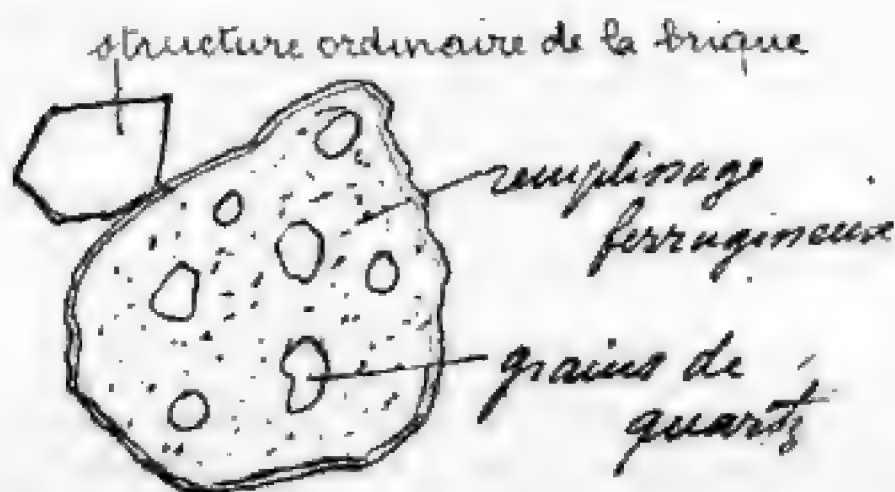 structure ordinaire de la brique
remplissage
ferrugineux
grains de
quartz